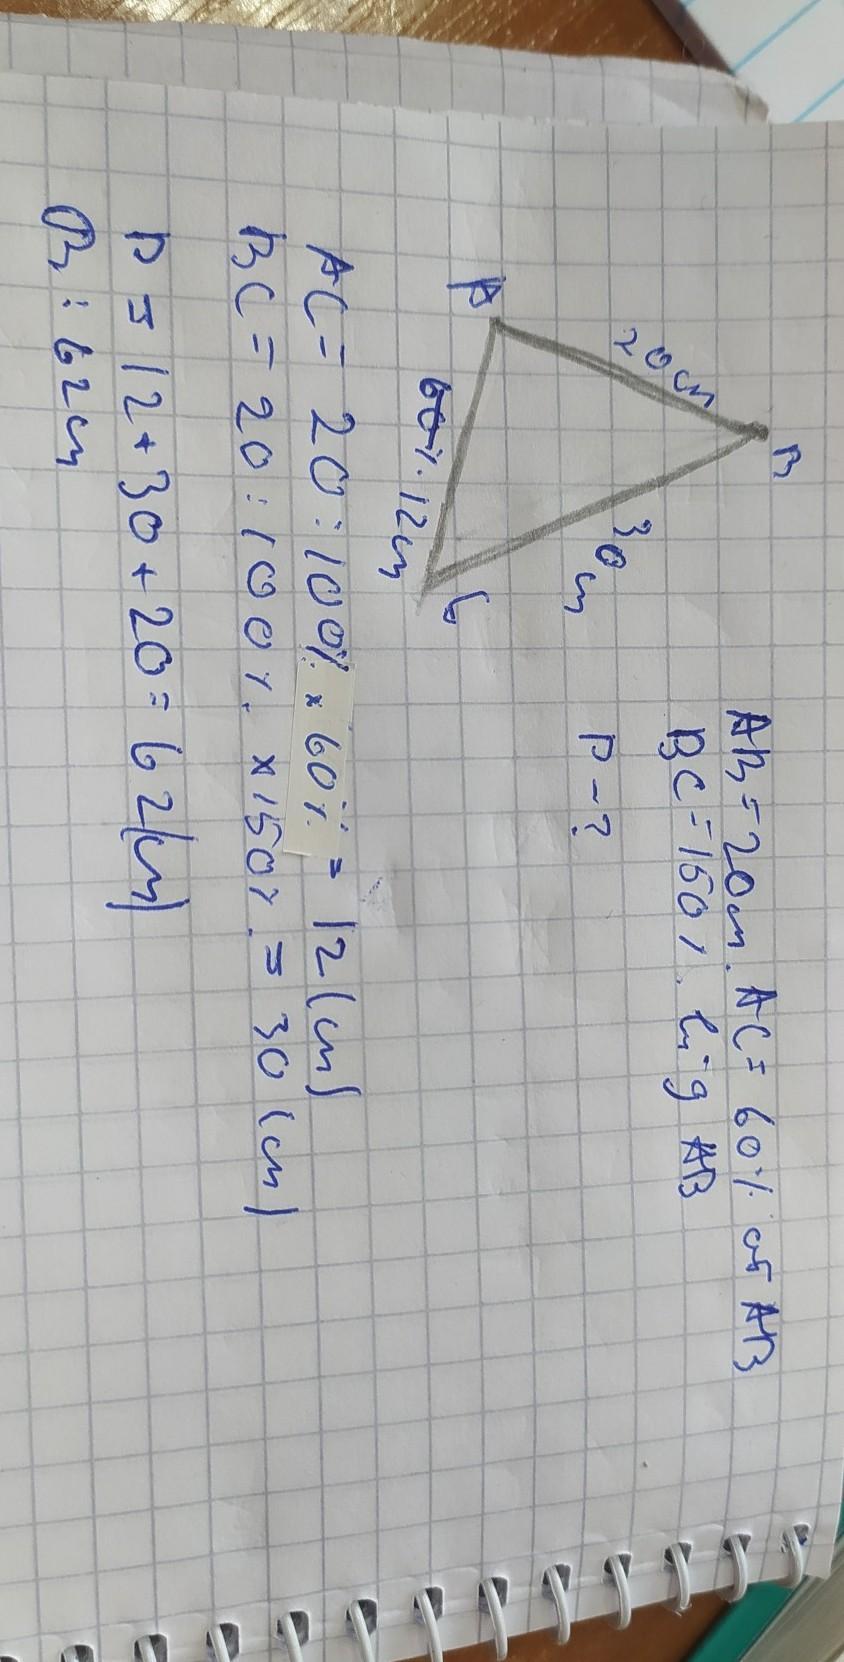 AB = 20cm. AC = 60% of AB
BC = 150%. AB
P - ?
A
20cm
B
30
C
60%. 12cm
AC = 20 : 100% × 60% = 12 (cm)
BC = 20 : 100%. × 150%. = 30 (cm)
P = 12 + 30 + 20 = 62 (cm)
: 62cm